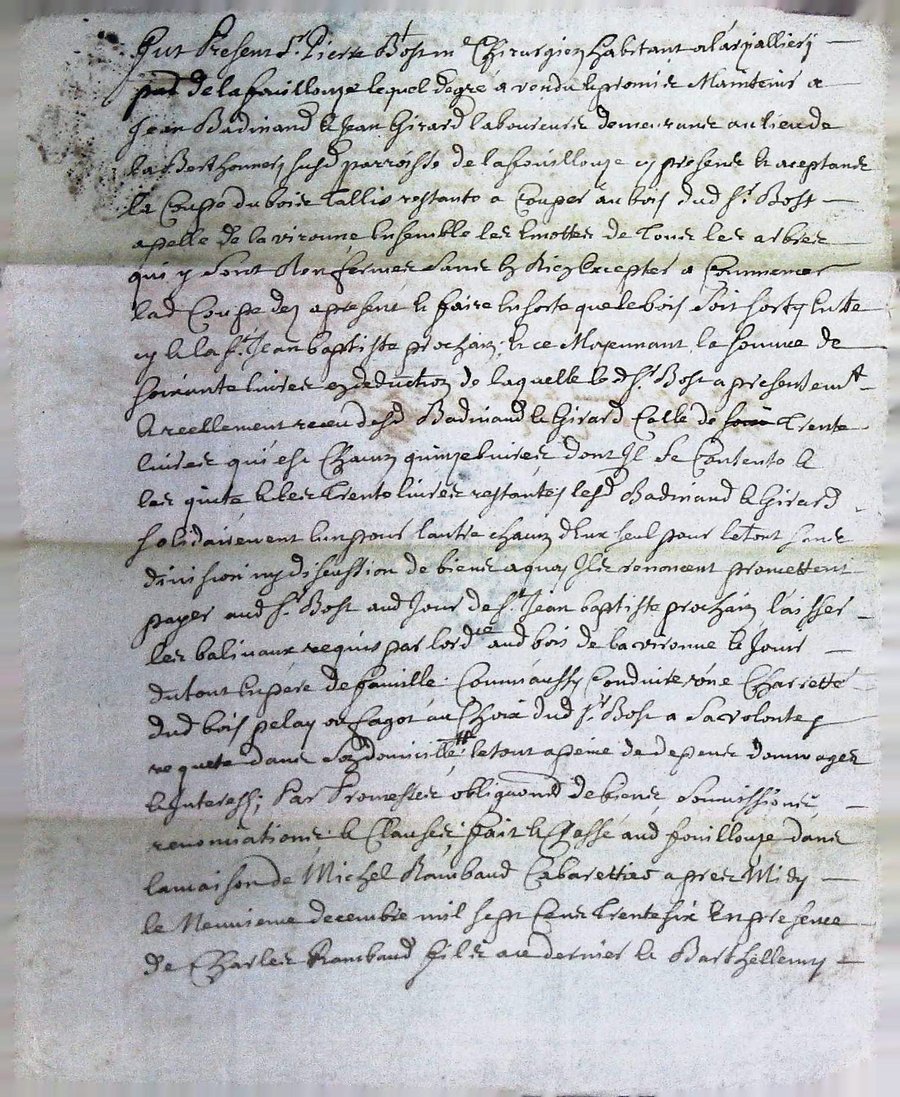 fut Present Sr Pierre Bost me Chirurgien habitant a
par de lafouillouze lequel degré a vendu & promis Maintenir a
Jean Badinand & Jean Girard laboureurs demeurans aulieu de
la susd parroisse de lafouillouze cy presens & aceptans
la Coupe dubois Tallis restante a Couper aubois dud Sr Bost
apelle de lavironne Ensemble les Emottes de Tous les arbres
qui y sont Renfermes sans En Rien Excepter a Commencer
lad Coupe des apresent & faire Ensorte que le bois soit sorty
cy & la St Jean baptiste prochain, & ce Moyennant la somme de
soixante livres en deduction de laquelle led Sr Bost a presentemt
& reellement receu desd Badinand & Girard Celle de Trente
livres qui est Chacun quinze livres dont Il se Contente &
les quite & les Trente livres restantes lesd Badinand & Girard
solidairement lun pour lautre chacun deux seul pour letout sans
division ny discussion de biens aquoy Ils renoncent promettent
payer aud Sr Bost aud Jour de St Jean baptiste prochain laisser
les balivaux requis par lordce aud bois de lavironne & Jouir
dutout Enpere defamille. Comm'aussy Conduire Une Charretté
dud bois pelay ou fagot au Choix dud Sr Bost a Sa volonte &
requete dans Son domicille letout apeine de depens dommages
& Interests; Par Promesses obligaons de biens soumissions
renonciations, & Clauses; fait & Passé aud fouillouze dans
lamaison de Michel Rambaud Cabarettier apres Midy
le Neuvieme decembre mil sept Cens Trente six En presence
de Charles Rambaud fils aud dernier & Barthellemy